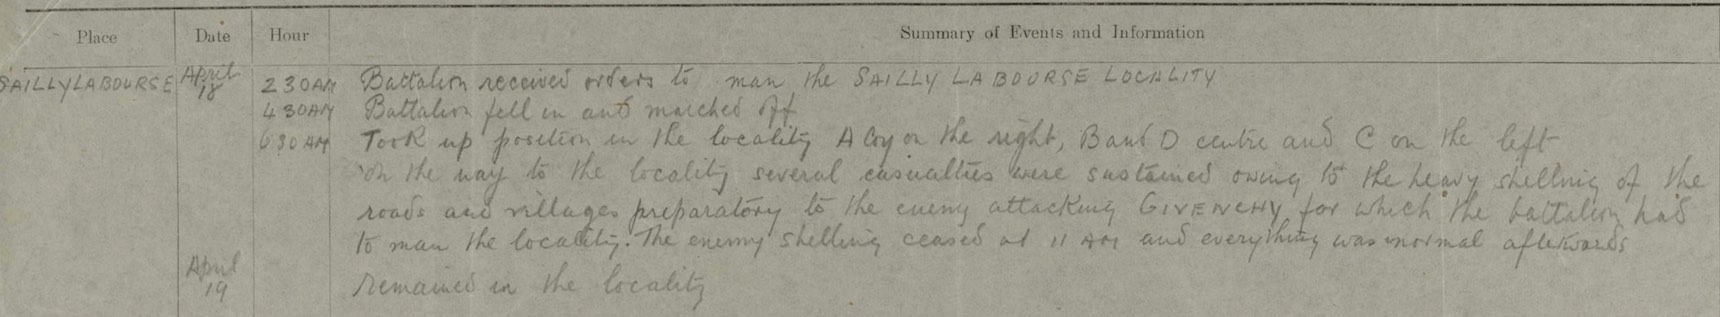 Place Date Hour Summary of Events and Information
SAILLY LABOURSE April 18 2 30 AM Battalion received orders to man the SAILLY LABOURSE LOCALITY
4 30 AM Battalion fell in and marched off
6 30 AM Took up position in the locality A Coy on the right, B and D centre and C on the left
On the way to the locality several casualties were sustained owing to the heavy shelling of the
roads and villages preparatory to the enemy attacking GIVENCHY for which the battalion had
to man the locality. The enemy shelling ceased at 11 AM and everything was normal afterwards
April 19 Remained in the locality